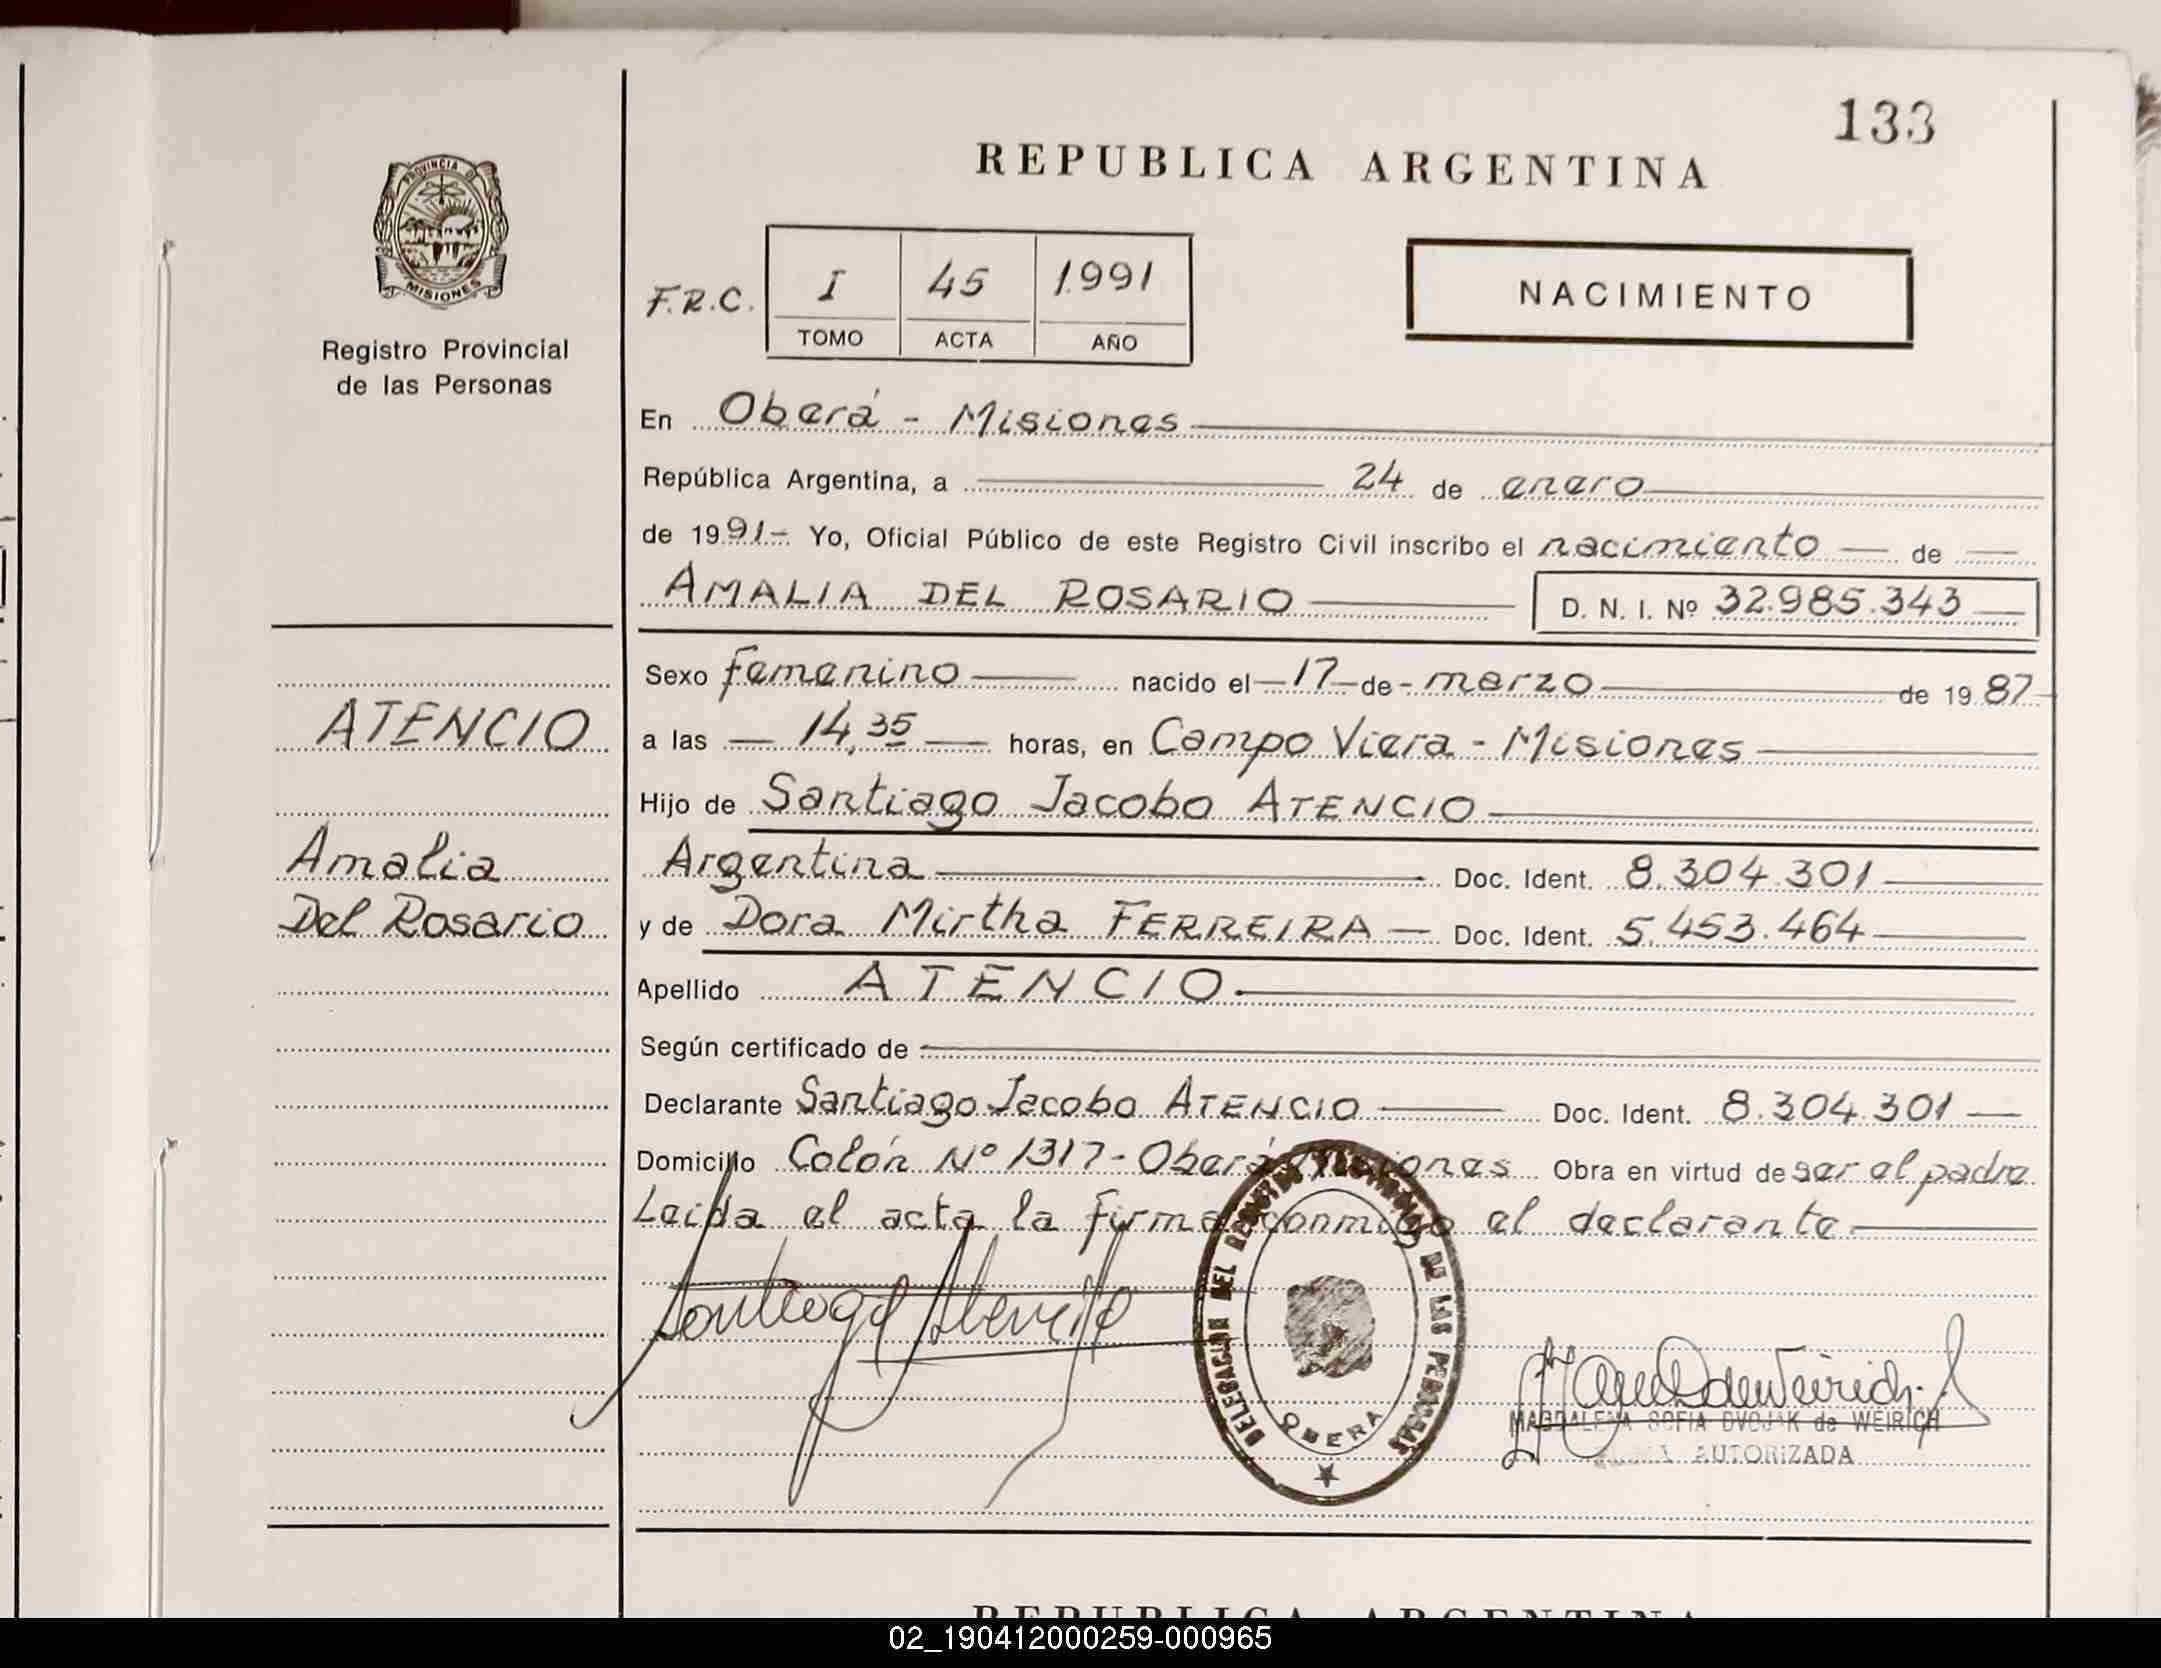 133
REPUBLICA ARGENTINA
PROVINCIA DE
MISIONES
Registro Provincial
de las Personas
F.R.C. I 45 1991
TOMO ACTA AÑO
NACIMIENTO
En Oberá - Misiones
República Argentina, a 24 de enero
de 1991- Yo, Oficial Público de este Registro Civil inscribo el nacimiento — de —
AMALIA DEL ROSARIO D. N. I. Nº 32.985.343
Sexo femenino nacido el 17 de marzo de 1987
a las 14,35 horas, en Campo Viera - Misiones
Hijo de Santiago Jacobo ATENCIO
Argentina Doc. Ident. 8.304.301
y de Dora Mirtha FERREIRA Doc. Ident. 5.453.464
Apellido ATENCIO
Según certificado de
Declarante Santiago Jacobo ATENCIO Doc. Ident. 8.304.301
Domicilio Colón Nº 1317 - Oberá Misiones Obra en virtud de ser el padre
Leida el acta la firma conmigo el declarante
ATENCIO
Amalia
Del Rosario
Santiago Atencio
DELEGACION DEL REGISTRO PROVINCIAL DE LAS PERSONAS
OBERA
MAGDALENA SOFIA DVOJAK de WEIRICH
AUTORIZADA
REPUBLICA ARGENTINA
02_190412000259-000965